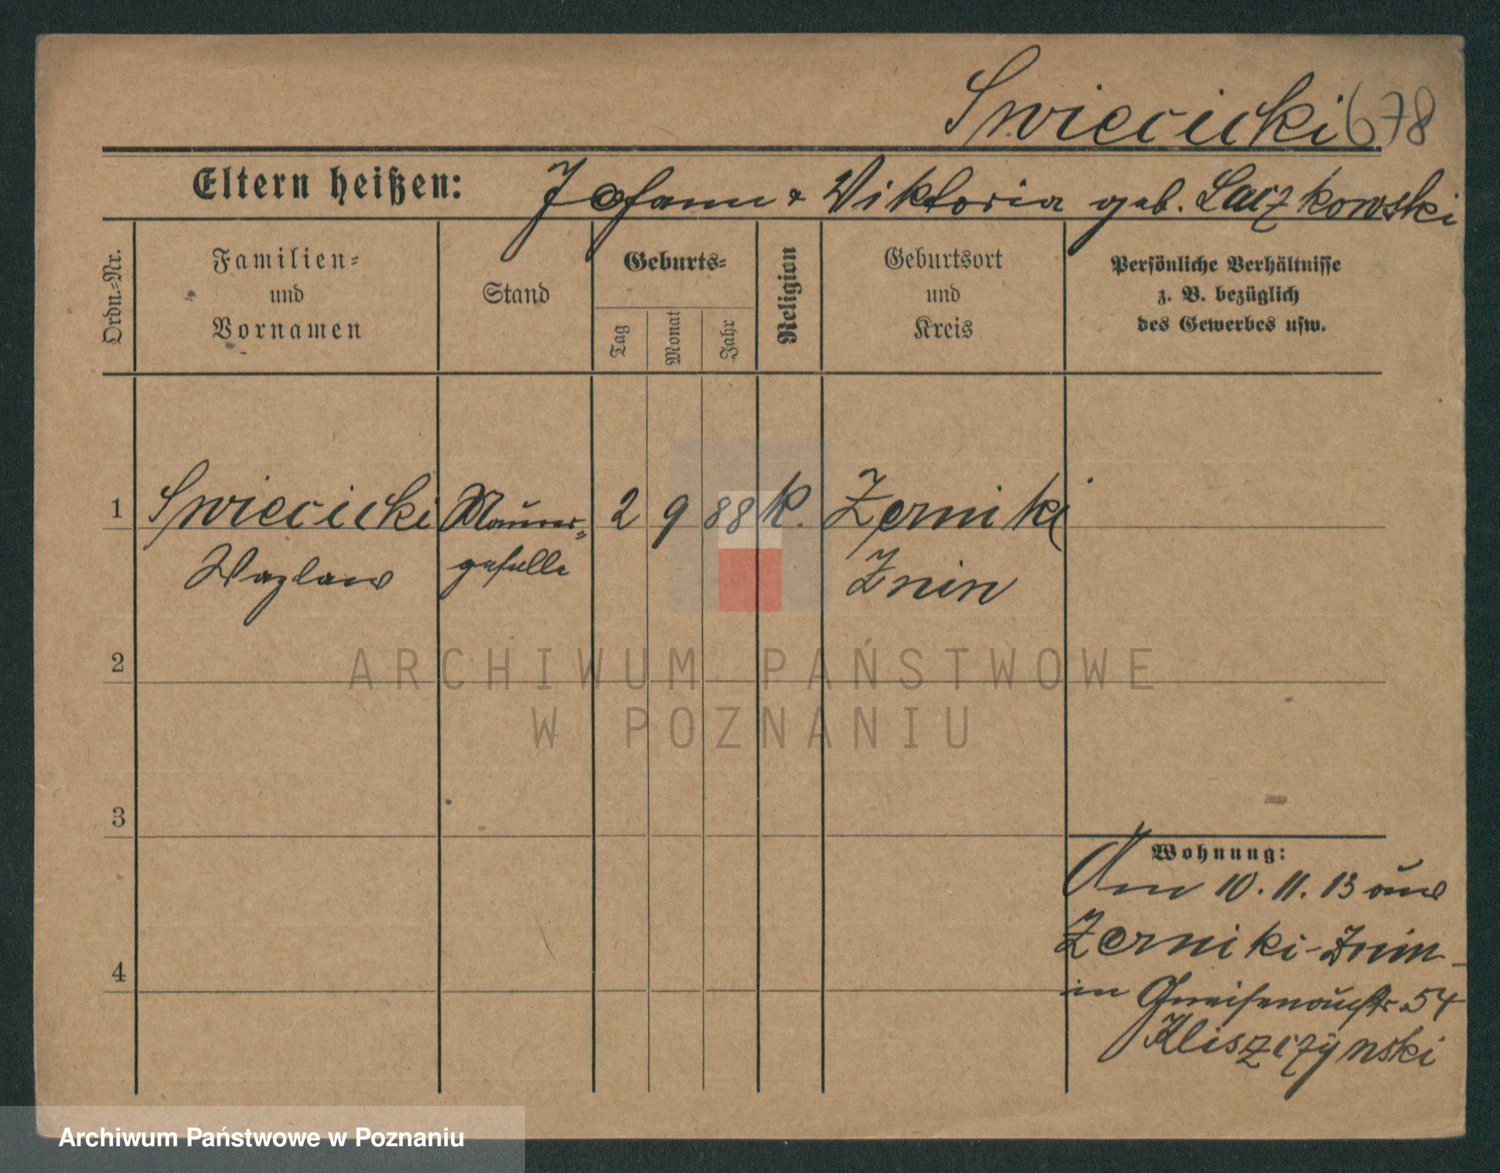 Swiecicki 678
Eltern heißen: Johann & Viktoria geb. Laczkowski
Ordn.-Nr.
Familien-
und
Vornamen
Stand
Geburts-
Tag
Monat
Jahr
Religion
Geburtsort
und
Kreis
Persönliche Verhältnisse
z. B. bezüglich
des Gewerbes usw.
1 Swiecicki Maurer- 2 9 88 k. Zerniki
Wazlaw geselle Znin
2
ARCHIWUM PAŃSTWOWE
W POZNANIU
3
Wohnung:
Am 10. 11. 13 aus
Zerniki-Znin
4
in Gneisenaustr. 54
Kliszczynski
Archiwum Państwowe w Poznaniu